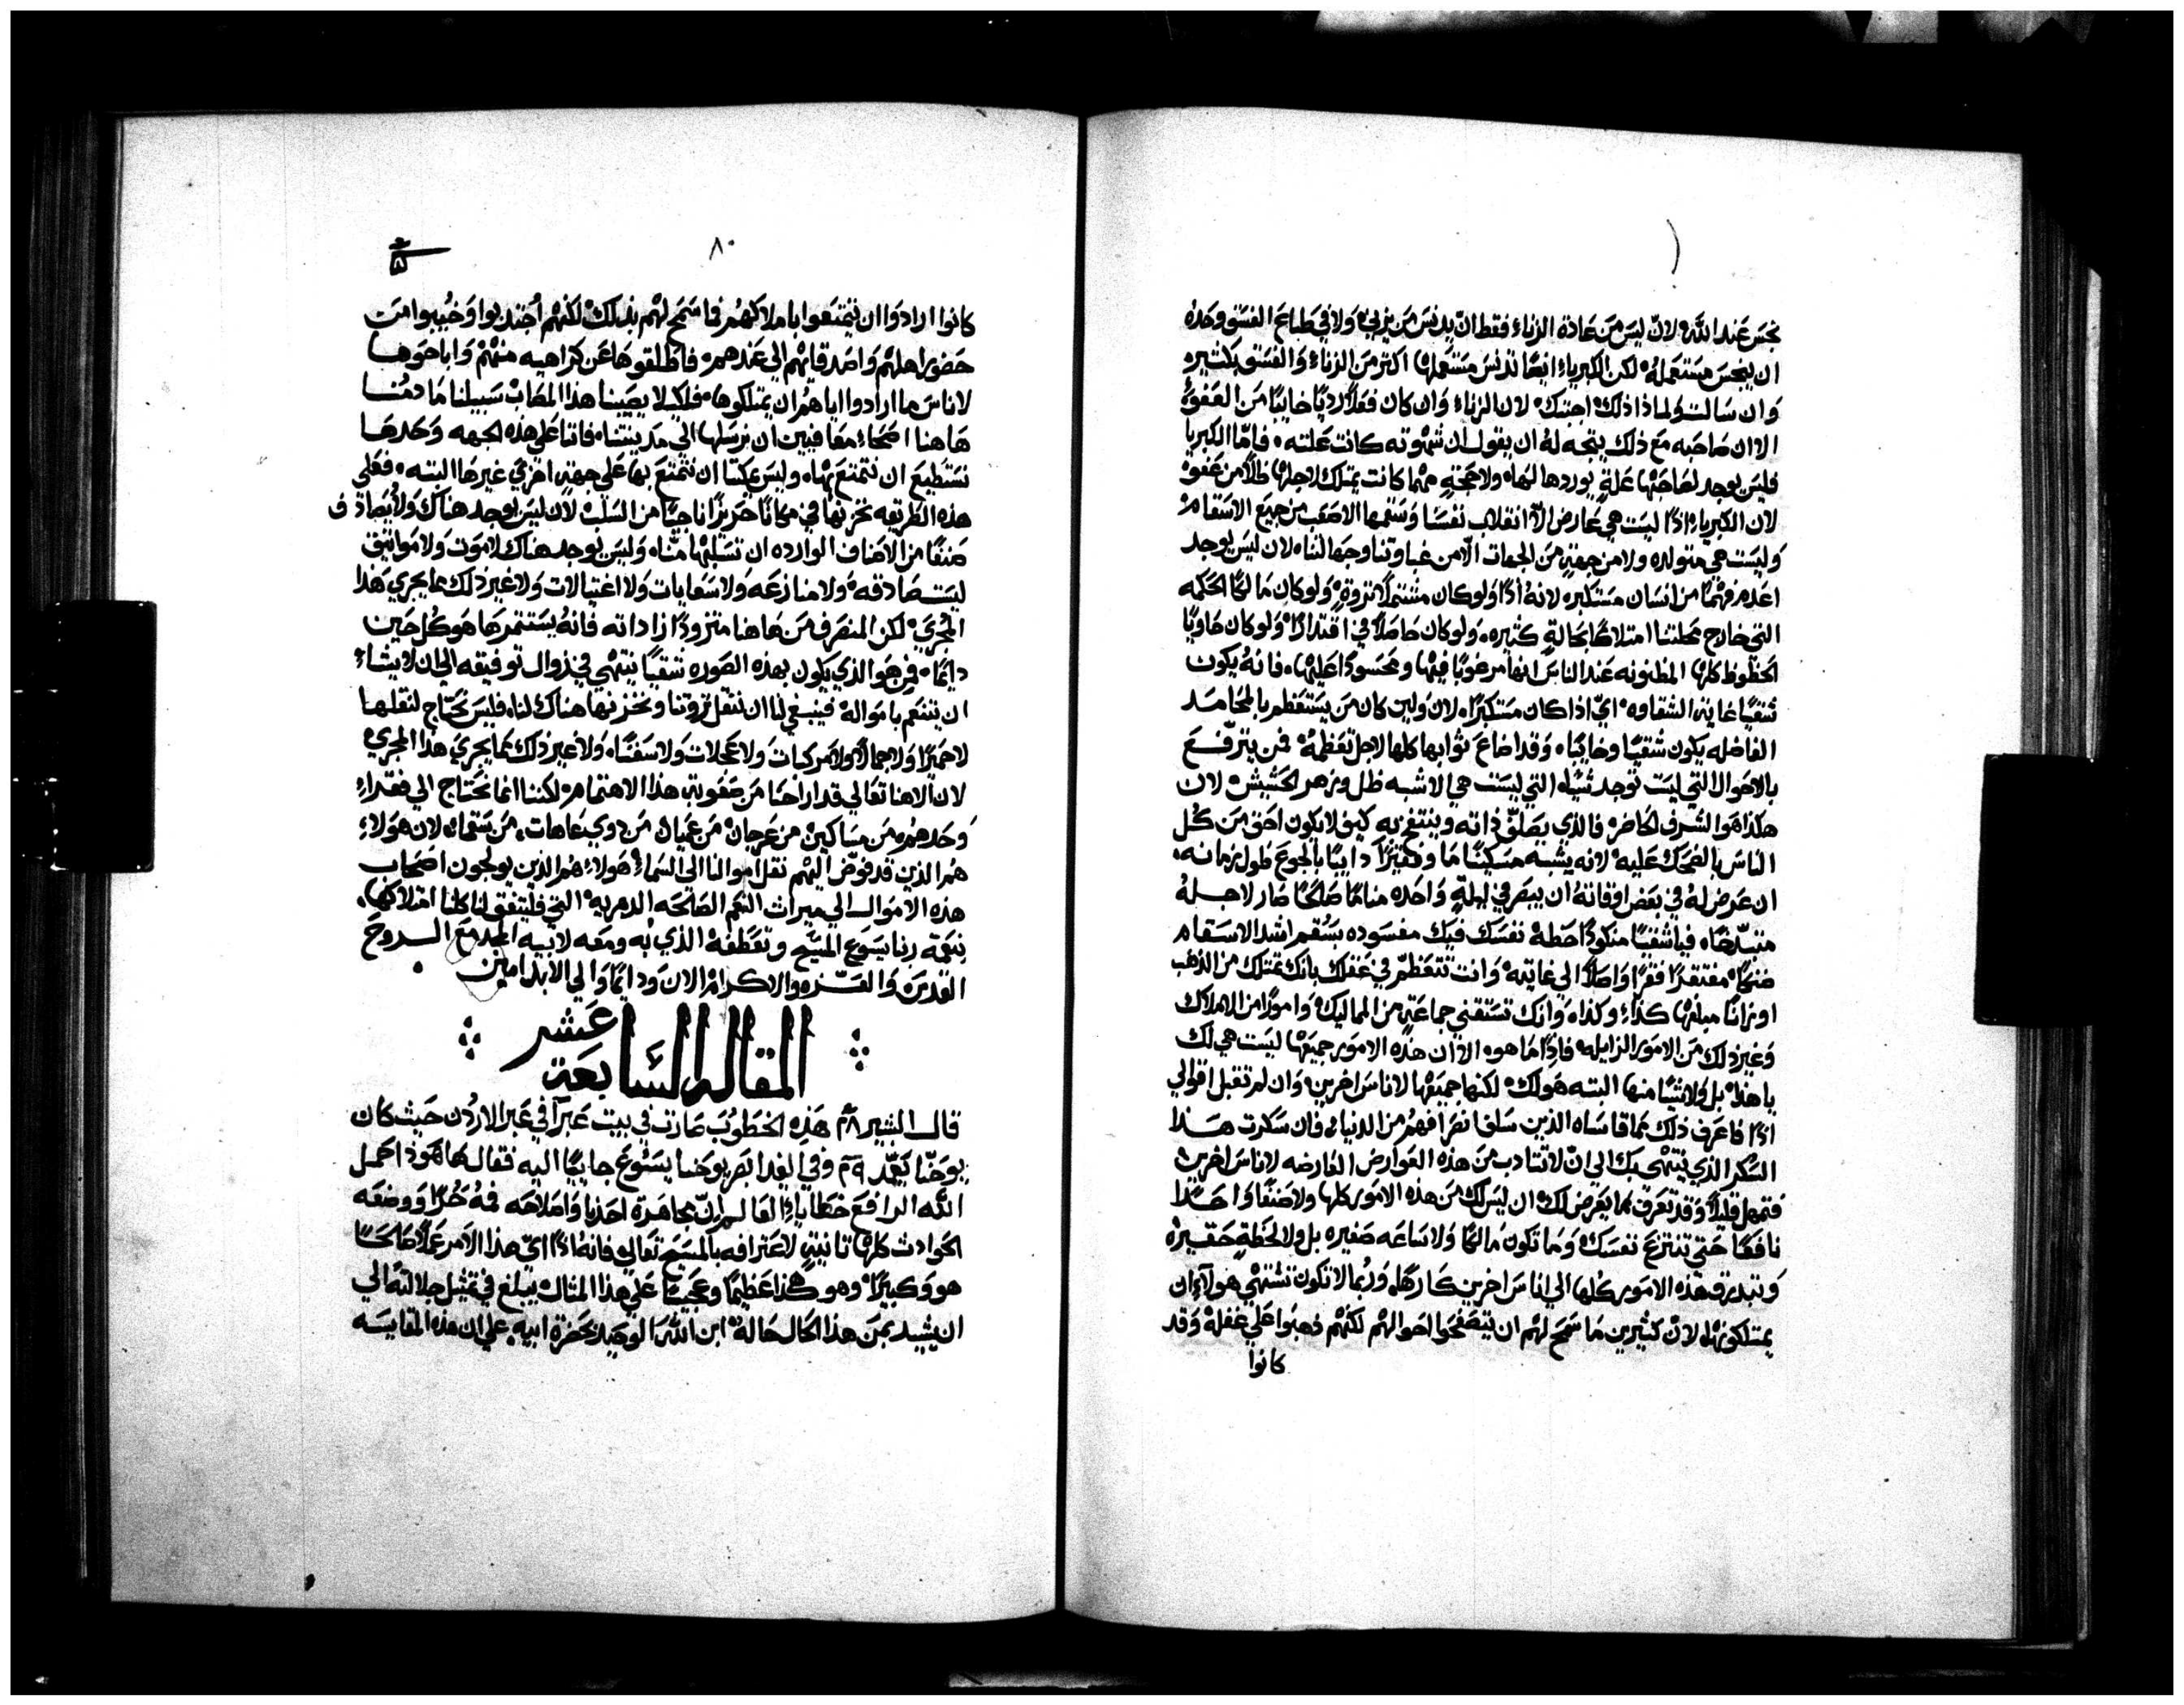 نجس عند الله لان ليس من عادة الزناء فقط ان يدنس من يزني ولا في طباع الفسق وحده
ان ينجس مستعمله لكن الكبرياء ايضا تدنس مستعملها اكثر من الزناء والفسق بكثير
وان سالت ولماذا ذلك اجبتك لان الزناء وان كان فعلا رديا خايبا من العفو
الا ان صاحبه مع ذلك يتجه له ان يقول ان شهوته كانت علته فاما الكبريا
فليس يوجد لصاحبها علة يوردها لها ولا حجة مهما كانت يمتلك لاجلها ظلا من عفو
لان الكبرياء اذا ليست هي عارض الا انقلاب نفسا وسقمها الاصعب من جميع الاسقام
وليست هي متولده ولا من جهة من الجهات الا من غباوتنا وجهالتنا لان ليس يوجد
اعدم فهما من انسان مستكبر لانه اذا ولو كان مشتملا ثروة ولو كان مالكا الحكمه
التي خارج محلتنا امتلاكا بحالة كثيره ولو كان حاصلا في اقتدار ولو كان حاويا
الحظوظ كلها المظنونه عند الناس انها مرغوبا فيها ومحسودا عليها فانه يكون
شقيا غاية الشقاوه اي اذا كان مستكبرا لان ولين كان من يستعظم بالمحامد
الفاضله يكون شقيا وخايبا وقد اضاع ثوابها كلها لاجل تعظمه فمن يترفع
بالاحوال التي ليست توجد شيا التي ليست هي الا شبه ظل وزهر الحشيش لان
هكذا هو الشرف الحاضر فالذي يصلف ذاته وينتفخ به كيف لا يكون احق من كل
الناس بالضحك عليه لانه يشبه مسكينا ما وفقيرا دايبا بالجوع طول زمانه
ان عرض له في بعض اوقاته ان يبصر في ليلة واحده مناما صالحا صار لاجله
فيا شقيا منكودا حظه نفسك فيك مفسوده بسقم اشد الاسقام
مفتقرا فقرا واصلا الي غايته وانت تتعظم في عقلك بانك تمتلك من الذهب
اوزانا مبلغها كذا وكذا وانك تستقني جماعة من المماليك وامورا من الاملاك
وغير ذلك من الامور الزايله فاذا ما هو الا ان هذه الامور جميعها ليست هي لك
يا هذا بل ولا شيا منها البته هو لك لكنها جميعها لاناس اخرين وان لم تقبل اقوالي
اذا فاعرف ذلك مما قاساه الذين سلف انصرافهم من الدنيا فان سكرت هذا
السكر الذي ينتهي بك الي ان لا تتادب من هذه العوارض العارضه لاناس اخرين
فتمهل قليلا وقد تعرف مما يعرض لك ان ليس لك من هذه الامور كلها ولا صنفا واحدا
نافعا حتي تنتزع نفسك وما تكون مالكا ولا ساعه صغيره بل ولا لحظة حقيره
وتبدر هذه الامور كلها الي اناس اخرين كارها وربما لا تكون تشتهي هولاء ان
يمتلكونها لان كثيرين ما سمح لهم ان يتصفحوا احوالهم لكنهم ذهبوا علي غفلة وقد
كانوا
٨٠
كانوا ارادوا ان يتمتعوا باملاكهم فما سمح لهم بذلك لكنهم اجتذبوا وخيبوا من
حضور اهلهم واصدقائهم الي عندهم فاطلقوها عن كراهيه منهم واباحوها
لاناس ما ارادوا اياهم ان يمتلكوها فلكيلا يصيبنا هذا المصاب سبيلنا ما دمنا
هاهنا اصحاء معافيين ان نرسلها الي مدينتنا فاننا علي هذه الجهه وحدها
نستطيع ان نتمتع بها وليس يمكننا ان نتمتع بها علي جهة اخري غيرها البته فعلي
هذه الطريقه نخزنها في مكانا حريزا ناجيا من السلب لان ليس يوجد هناك ولا يصادف
صنفا من الاصناف الوارده ان تسلبها منا وليس يوجد هناك لا موت ولا مواثيق
ليست صادقه ولا منازعه ولا سعايات ولا اغتيالات ولا غير ذلك مما يجري هذا
المجري لكن المنصرف من هاهنا متزودا زادا ته فانه يستثمرها هو كل حين
دايما فمن هو الذي يكون بهذه الصوره شقيا ينتهي في زوال توفيقه الي ان لا يشاء
ان يتنعم بامواله فينبغي لنا ان ننقل ثروتنا ونخزنها هناك لنا فليس نحتاج لنقلها
لا حميرا ولا جمالا ولا مركبات ولا عجلات ولا سفنا ولا غير ذلك مما يجري هذا المجري
لان الاهنا تعالي قد اراحنا من صعوبة هذا الاهتمام لكننا انما نحتاج الي فقراء
وحدهم من مساكين من عرجان من عميان من ذوي عاهات من سقماء لان هولاء
هم الذين قد فوض اليهم نقل اموالنا الي السماء هولاء هم الذين يولجون اصحاب
هذه الاموال الي ميراث النعم الصالحه الدهريه التي فليتفق لنا كلنا امتلاكها
بنعمة ربنا يسوع المسيح وتعطفه الذي به ومعه لابيه المجد مع الروح
القدس والعز والاكرام الان ودايما والي الابد امين
المقالة السابعة عشر
قال البشير ٢٨ هذه الخطوب صارت في بيت عبرا في عبر الاردن حيث كان
يوحنا يعمد ٢٩ وفي الغد ابصر يوحنا يسوع جاييا اليه فقال ها هوذا حمل
الله الرافع خطايا العالم ان مجاهرة احدنا واصلاحه فمه حرا ووضعه
الحوادث كلها ثانية لاعترافه بالمسيح تعالي فانه اذا اي هذا الامر عملا صالحا
هو وكبيرا وهو هكذا عظيما وعجيبا علي هذا المثال يبلغ في تمثل جلالته الي
ان يشيد بمن هذا الحال حاله ابن الله الوحيد بحضرة ابيه علي ان هذه المقايسه